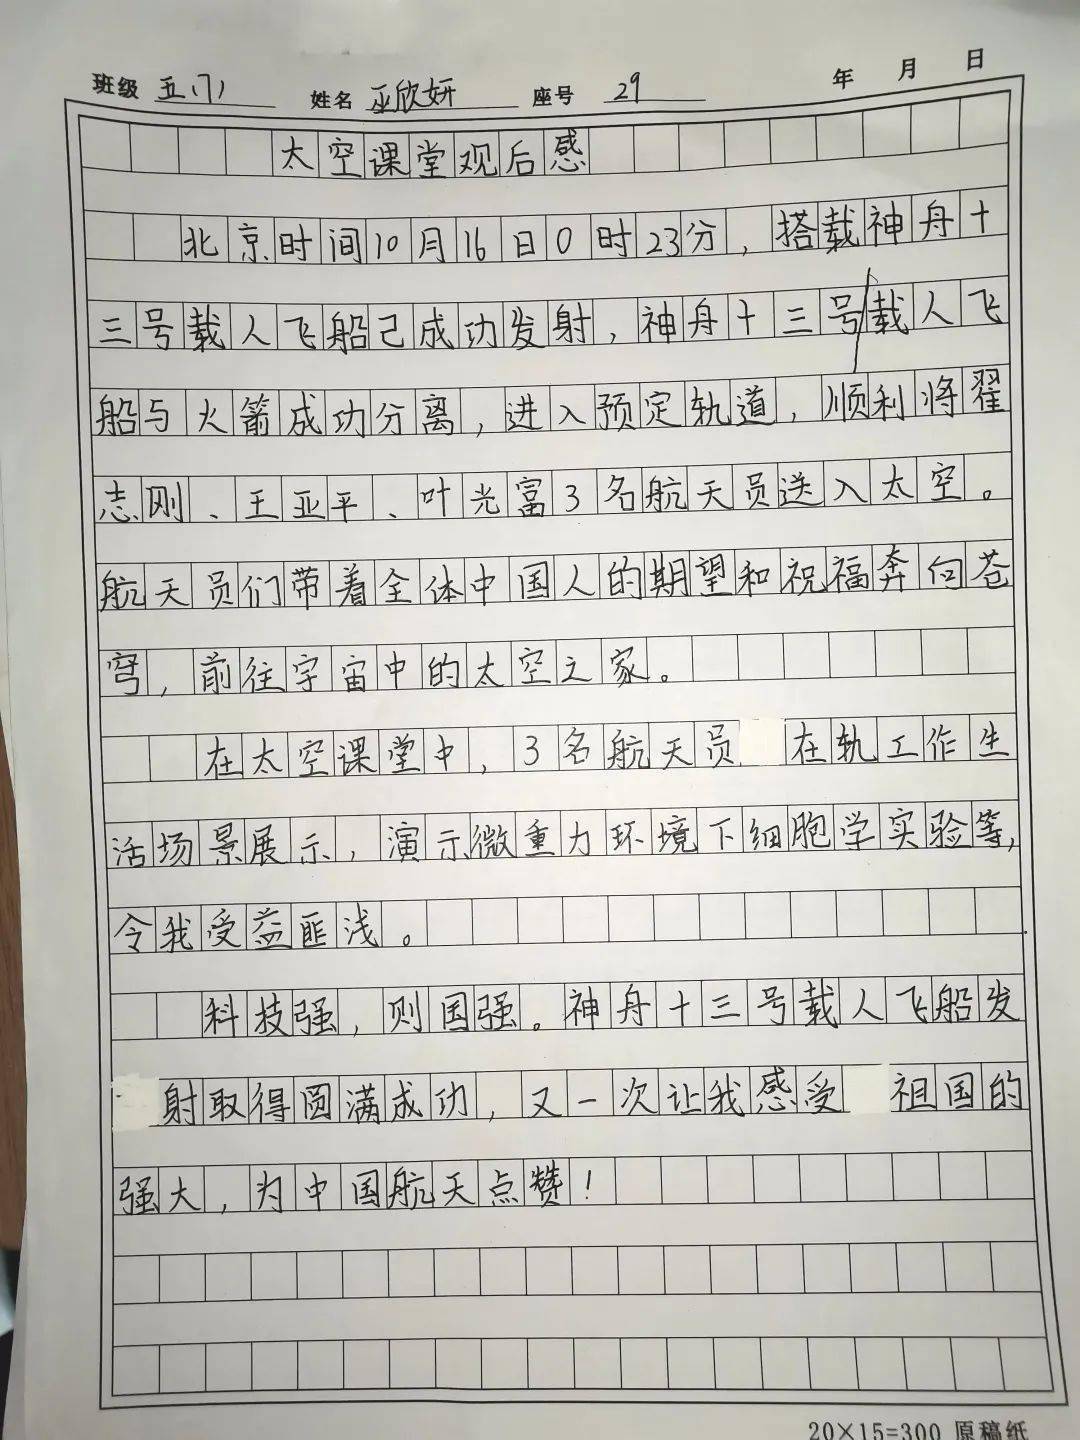 班级 五(1) 姓名 巫欣妍 座号 29 年 月 日
太空课堂观后感
北京时间10月16日0时23分，搭载神舟十
三号载人飞船已成功发射，神舟十三号载人飞
船与火箭成功分离，进入预定轨道，顺利将翟
志刚、王亚平、叶光富3名航天员送入太空。
航天员们带着全体中国人的期望和祝福奔向苍
穹，前往宇宙中的太空之家。
在太空课堂中，3名航天员 在轨工作生
活场景展示，演示微重力环境下细胞学实验等，
令我受益匪浅。
科技强，则国强。神舟十三号载人飞船发
射取得圆满成功，又一次让我感受 祖国的
强大，为中国航天点赞！
20×15=300 原稿纸